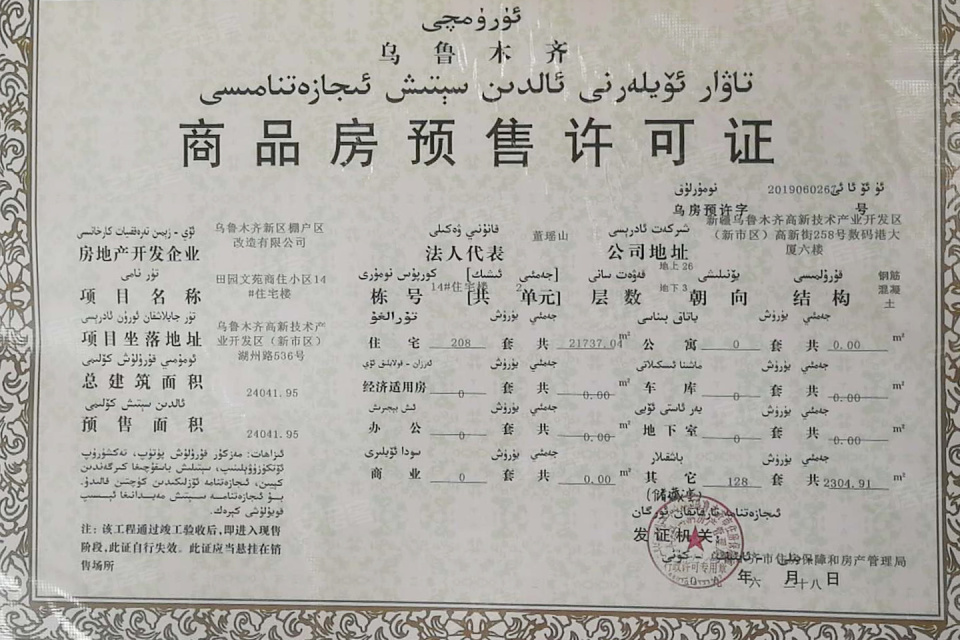 ئۈرۈمچى
乌鲁木齐
تاۋار ئۆيلەرنى ئالدىن سېتىش ئىجازەتنامىسى
商品房预售许可证
نومۇرلۇق 2019060267 ئۈ ئۆ ئا ئى
乌房预许字 号
ئۆي - زېمىن تەرەققىيات كارخانىسى
房地产开发企业
乌鲁木齐新区棚户区
改造有限公司
قانۇنىي ۋەكىلى
法人代表
董瑶山
شىركەت ئادرېسى
公司地址
新疆乌鲁木齐高新技术产业开发区
（新市区）高新街258号数码港大
厦六楼
تۈر نامى
项目名称
田园文苑商住小区14
#住宅楼
كورپۇس نومۇرى [جەمئىي ئىشىك]
栋号 [共 单元]
14#住宅楼 2
قەۋەت سانى
层数
地上 26
地下 3
يۆنىلىشى
朝向
قۇرۇلمىسى
结构
钢筋
混凝
土
تۈر جايلاشقان ئورۇن ئادرېسى
项目坐落地址
乌鲁木齐高新技术产
业开发区（新市区）
湖州路536号
تۇرالغۇ جەمئىي يۈرۈش
住宅 208 套 共 21737.04 m²
باتاق بىناسى جەمئىي يۈرۈش
公寓 0 套 共 0.00 m²
ئومۇمىي قۇرۇلۇش كۆلىمى
总建筑面积 24041.95
جەمئىي يۈرۈش
经济适用房 0 套 共 0.00 m²
ماشىنا ئىسكىلاتى جەمئىي يۈرۈش
车库 0 套 共 0.00 m²
ئالدىن سېتىش كۆلىمى
预售面积 24041.95
ئىش بېجىرىش جەمئىي يۈرۈش
办公 0 套 共 0.00 m²
يەر ئاستى ئۆيى جەمئىي يۈرۈش
地下室 0 套 共 0.00 m²
سودا ئۆيلىرى جەمئىي يۈرۈش
商业 0 套 共 0.00 m²
باشقىلار جەمئىي يۈرۈش
其它 128 套 共 2304.91 m²
(储藏室)
注：该工程通过竣工验收后，即进入现售
阶段，此证自行失效。此证应当悬挂在销
售场所
ئىجازەتنامە تارقاتقان ئورگان
发证机关：
乌鲁木齐市住房保障和房产管理局
行政许可专用章
年 六 月 二十八 日